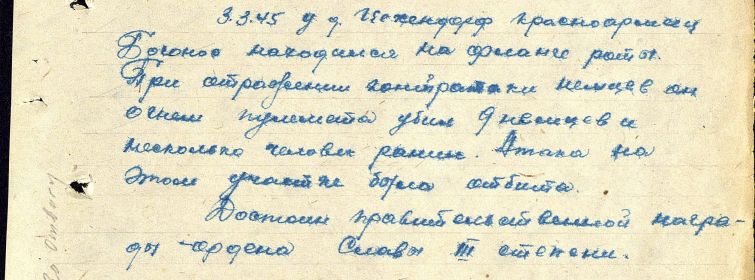 3.3.45 у д. Цехендорф красноармеец
Богонос находился на фланге роты.
При отражении контратаки немцев он
огнем пулемета убил 9 немцев и
несколько человек ранил. Атака на
этом участке была отбита.
Достоин правительственной награ-
ды -ордена Славы III степени.
За отвагу